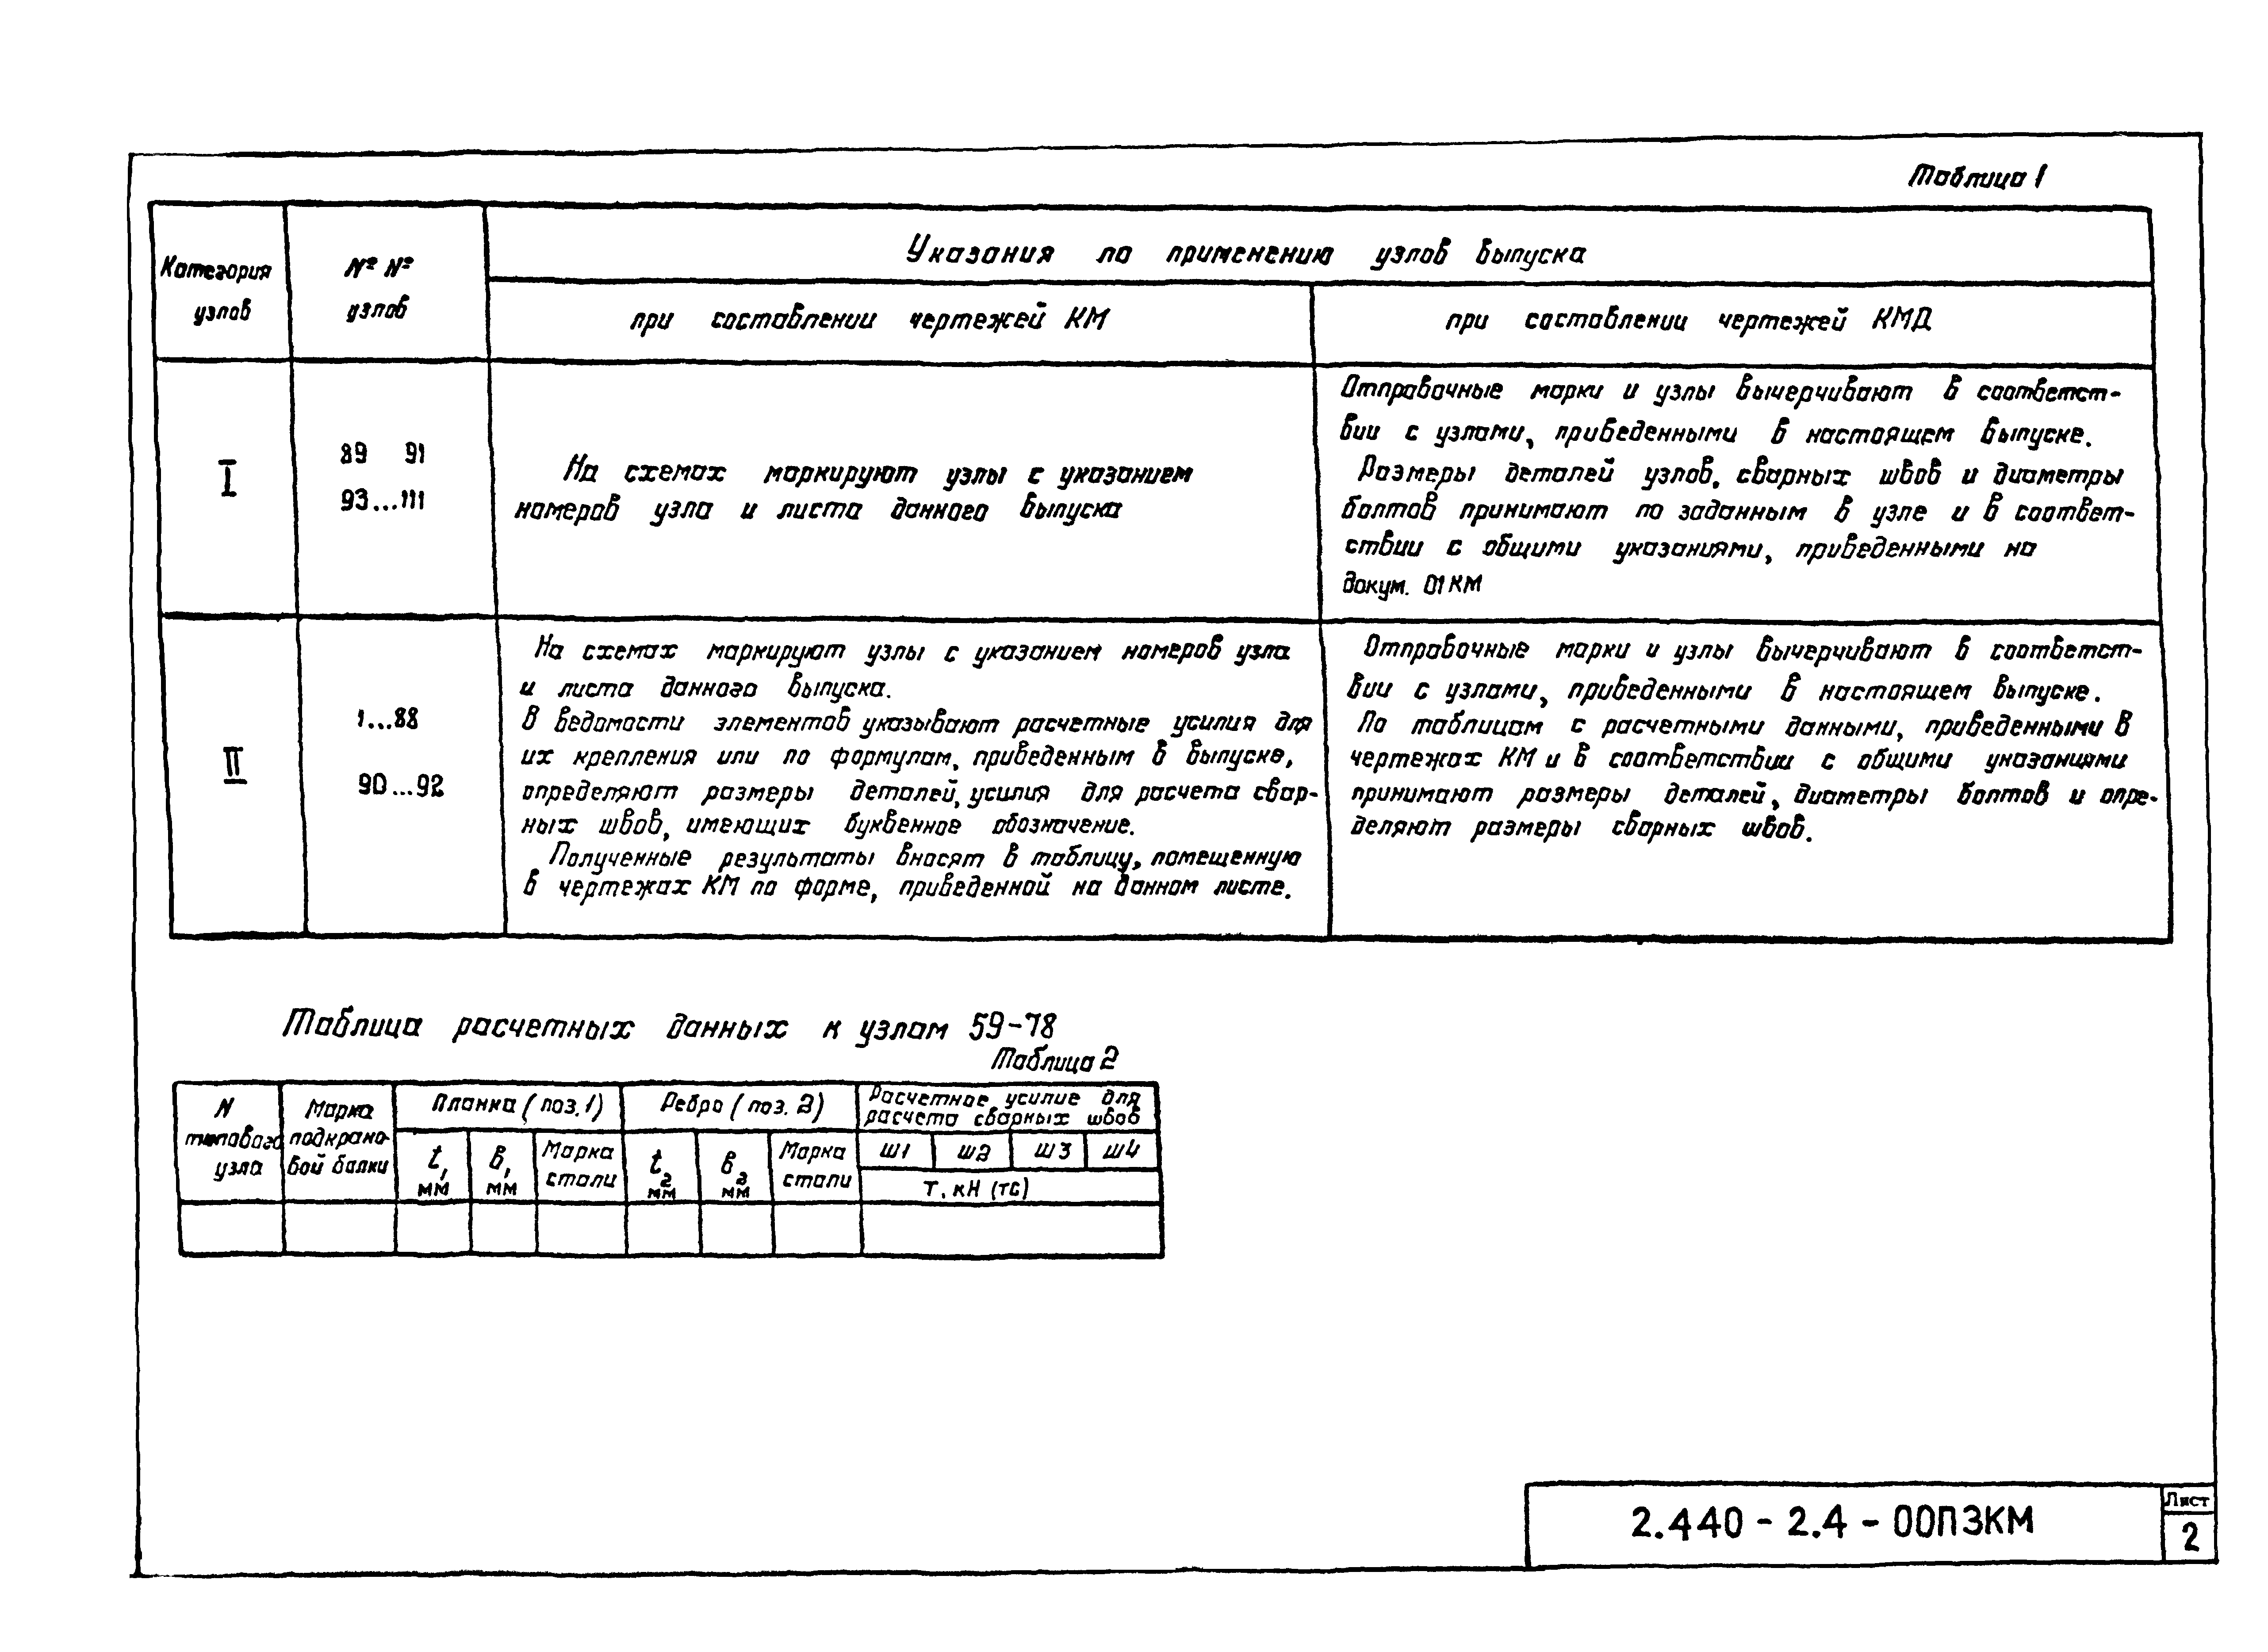 Таблица 1
Категория
узлов
№ №
узлов
Указания по применению узлов выпуска
при составлении чертежей КМ
при составлении чертежей КМД
I
89 91
93...111
На схемах маркируют узлы с указанием
номеров узла и листа данного выпуска
Отправочные марки и узлы вычерчивают в соответст-
вии с узлами, приведенными в настоящем выпуске.
Размеры деталей узлов, сварных швов и диаметры
болтов принимают по заданным в узле и в соответ-
ствии с общими указаниями, приведенными на
докум. 01КМ
II
1...88
90...92
На схемах маркируют узлы с указанием номеров узла
и листа данного выпуска.
В ведомости элементов указывают расчетные усилия для
их крепления или по формулам, приведенным в выпуске,
определяют размеры деталей, усилия для расчета свар-
ных швов, имеющих буквенное обозначение.
Полученные результаты вносят в таблицу, помещенную
в чертежах КМ по форме, приведенной на данном листе.
Отправочные марки и узлы вычерчивают в соответст-
вии с узлами, приведенными в настоящем выпуске.
По таблицам с расчетными данными, приведенными в
чертежах КМ и в соответствии с общими указаниями
принимают размеры деталей, диаметры болтов и опре-
деляют размеры сварных швов.
Таблица расчетных данных к узлам 59-78
Таблица 2
N
типового
узла
Марка
подкрано-
вой балки
Планка (поз. 1)
t1
мм
в1
мм
Марка
стали
Ребро (поз. 2)
t2
мм
в2
мм
Марка
стали
Расчетное усилие для
расчета сварных швов
Ш1 Ш2 Ш3 Ш4
Т, кН (тс)
2.440 - 2.4 - 00ПЗКМ
Лист
2